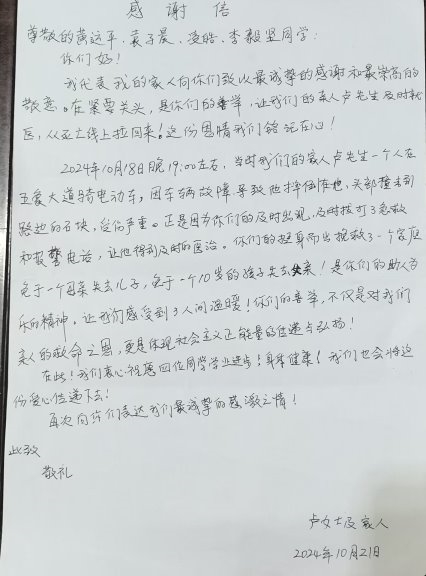 感谢信
尊敬的黄远平、袁子晨、凌皓、李毅坚同学:
你们好!
我代表我的家人向你们致以最诚挚的感谢和最崇高的
敬意。在紧要关头,是你们的善举,让我们的亲人卢先生及时就
医,从死亡线上拉回来!这份恩情我们铭记在心!
2024年10月18日晚19:00左右,当时我们的家人卢先生一个人在
五爱大道骑电动车,因车辆故障导致他摔倒在地,头部撞击到
路边的石块,受伤严重。正是因为你们的及时出现,及时拨打了急救
和报警电话,让他得到及时的医治。你们的挺身而出挽救了一个家庭
免于一个母亲失去儿子,免于一个10岁的孩子失去父亲!是你们的助人为
乐的精神,让我们感受到了人间温暖!你们的善举,不仅是对我们
亲人的救命之恩,更是体现社会主义正能量的传递与弘扬!
在此!我们衷心祝愿四位同学学业进步!身体健康!我们也会将这
份爱心传递下去!
再次向你们表达我们最诚挚的感激之情!
此致
敬礼
卢女士及家人
2024年10月21日